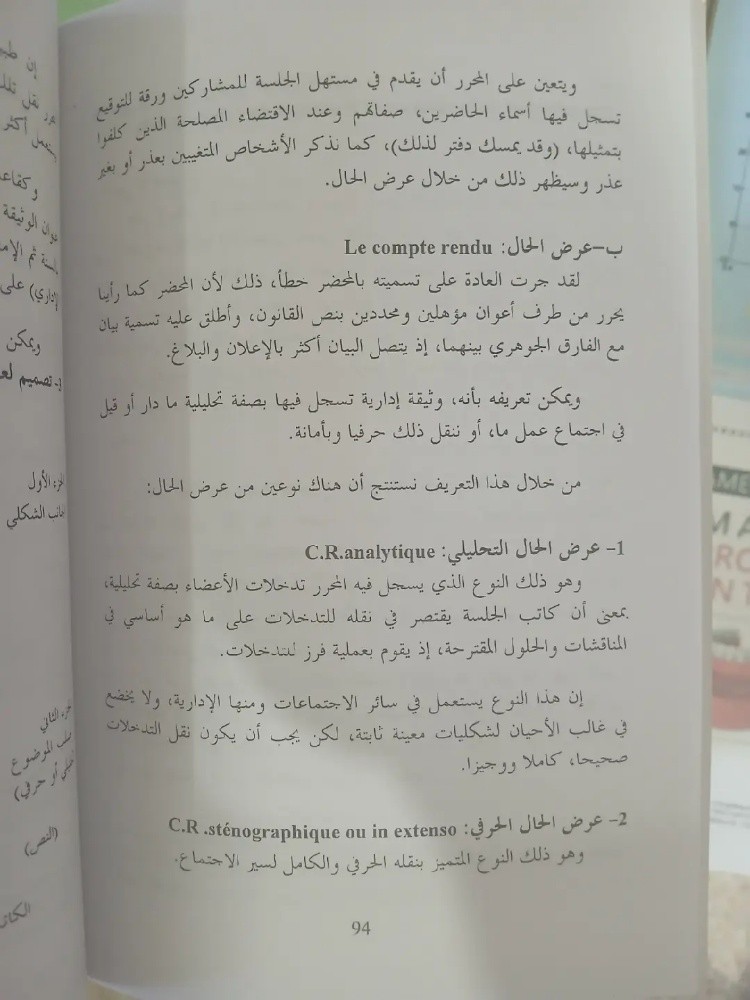 ويتعين على المحرر أن يقدم في مستهل الجلسة للمشاركين ورقة للتوقيع
تسجل فيها أسماء الحاضرين، صفاتهم وعند الاقتضاء المصلحة الذين كلفوا
بتمثيلها، (وقد يمسك دفتر لذلك)، كما نذكر الأشخاص المتغيبين بعذر أو بغير
عذر وسيظهر ذلك من خلال عرض الحال.
ب-عرض الحال: Le compte rendu
لقد جرت العادة على تسميته بالمحضر خطأ، ذلك لأن المحضر كما رأينا
يحرر من طرف أعوان مؤهلين ومحددين بنص القانون، وأطلق عليه تسمية بيان
مع الفارق الجوهري بينهما، إذ يتصل البيان أكثر بالإعلان والبلاغ.
ويمكن تعريفه بأنه، وثيقة إدارية تسجل فيها بصفة تحليلية ما دار أو قيل
في اجتماع عمل ما، أو ننقل ذلك حرفيا وبأمانة.
من خلال هذا التعريف نستنتج أن هناك نوعين من عرض الحال:
1- عرض الحال التحليلي: C.R.analytique
وهو ذلك النوع الذي يسجل فيه المحرر تدخلات الأعضاء بصفة تحليلية،
بمعنى أن كاتب الجلسة يقتصر في نقله للتدخلات على ما هو أساسي في
المناقشات والحلول المقترحة، إذ يقوم بعملية فرز للتدخلات.
إن هذا النوع يستعمل في سائر الاجتماعات ومنها الإدارية، ولا يخضع
في غالب الأحيان لشكليات معينة ثابتة، لكن يجب أن يكون نقل التدخلات
صحيحا، كاملا ووجيزا.
2- عرض الحال الحرفي: C.R .sténographique ou in extenso
وهو ذلك النوع المتميز بنقله الحرفي والكامل لسير الاجتماع.
94
إن
أكثر
عوان الوثيقة
ثم
على
ويمكن
تصميم
الأول
الشكلي
الثاني
الموضوع
أو حرفي)
(النص)